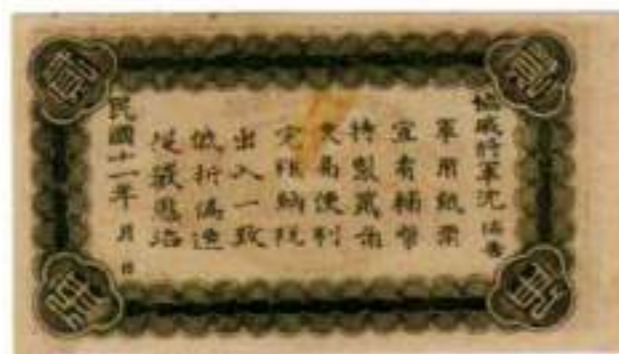 協威將軍沈 佈告
軍用紙票
宜有輔幣
特製貳角
交易便利
完糧納稅
出入一致
低折偽造
從嚴懲治
民國十一年 月 日